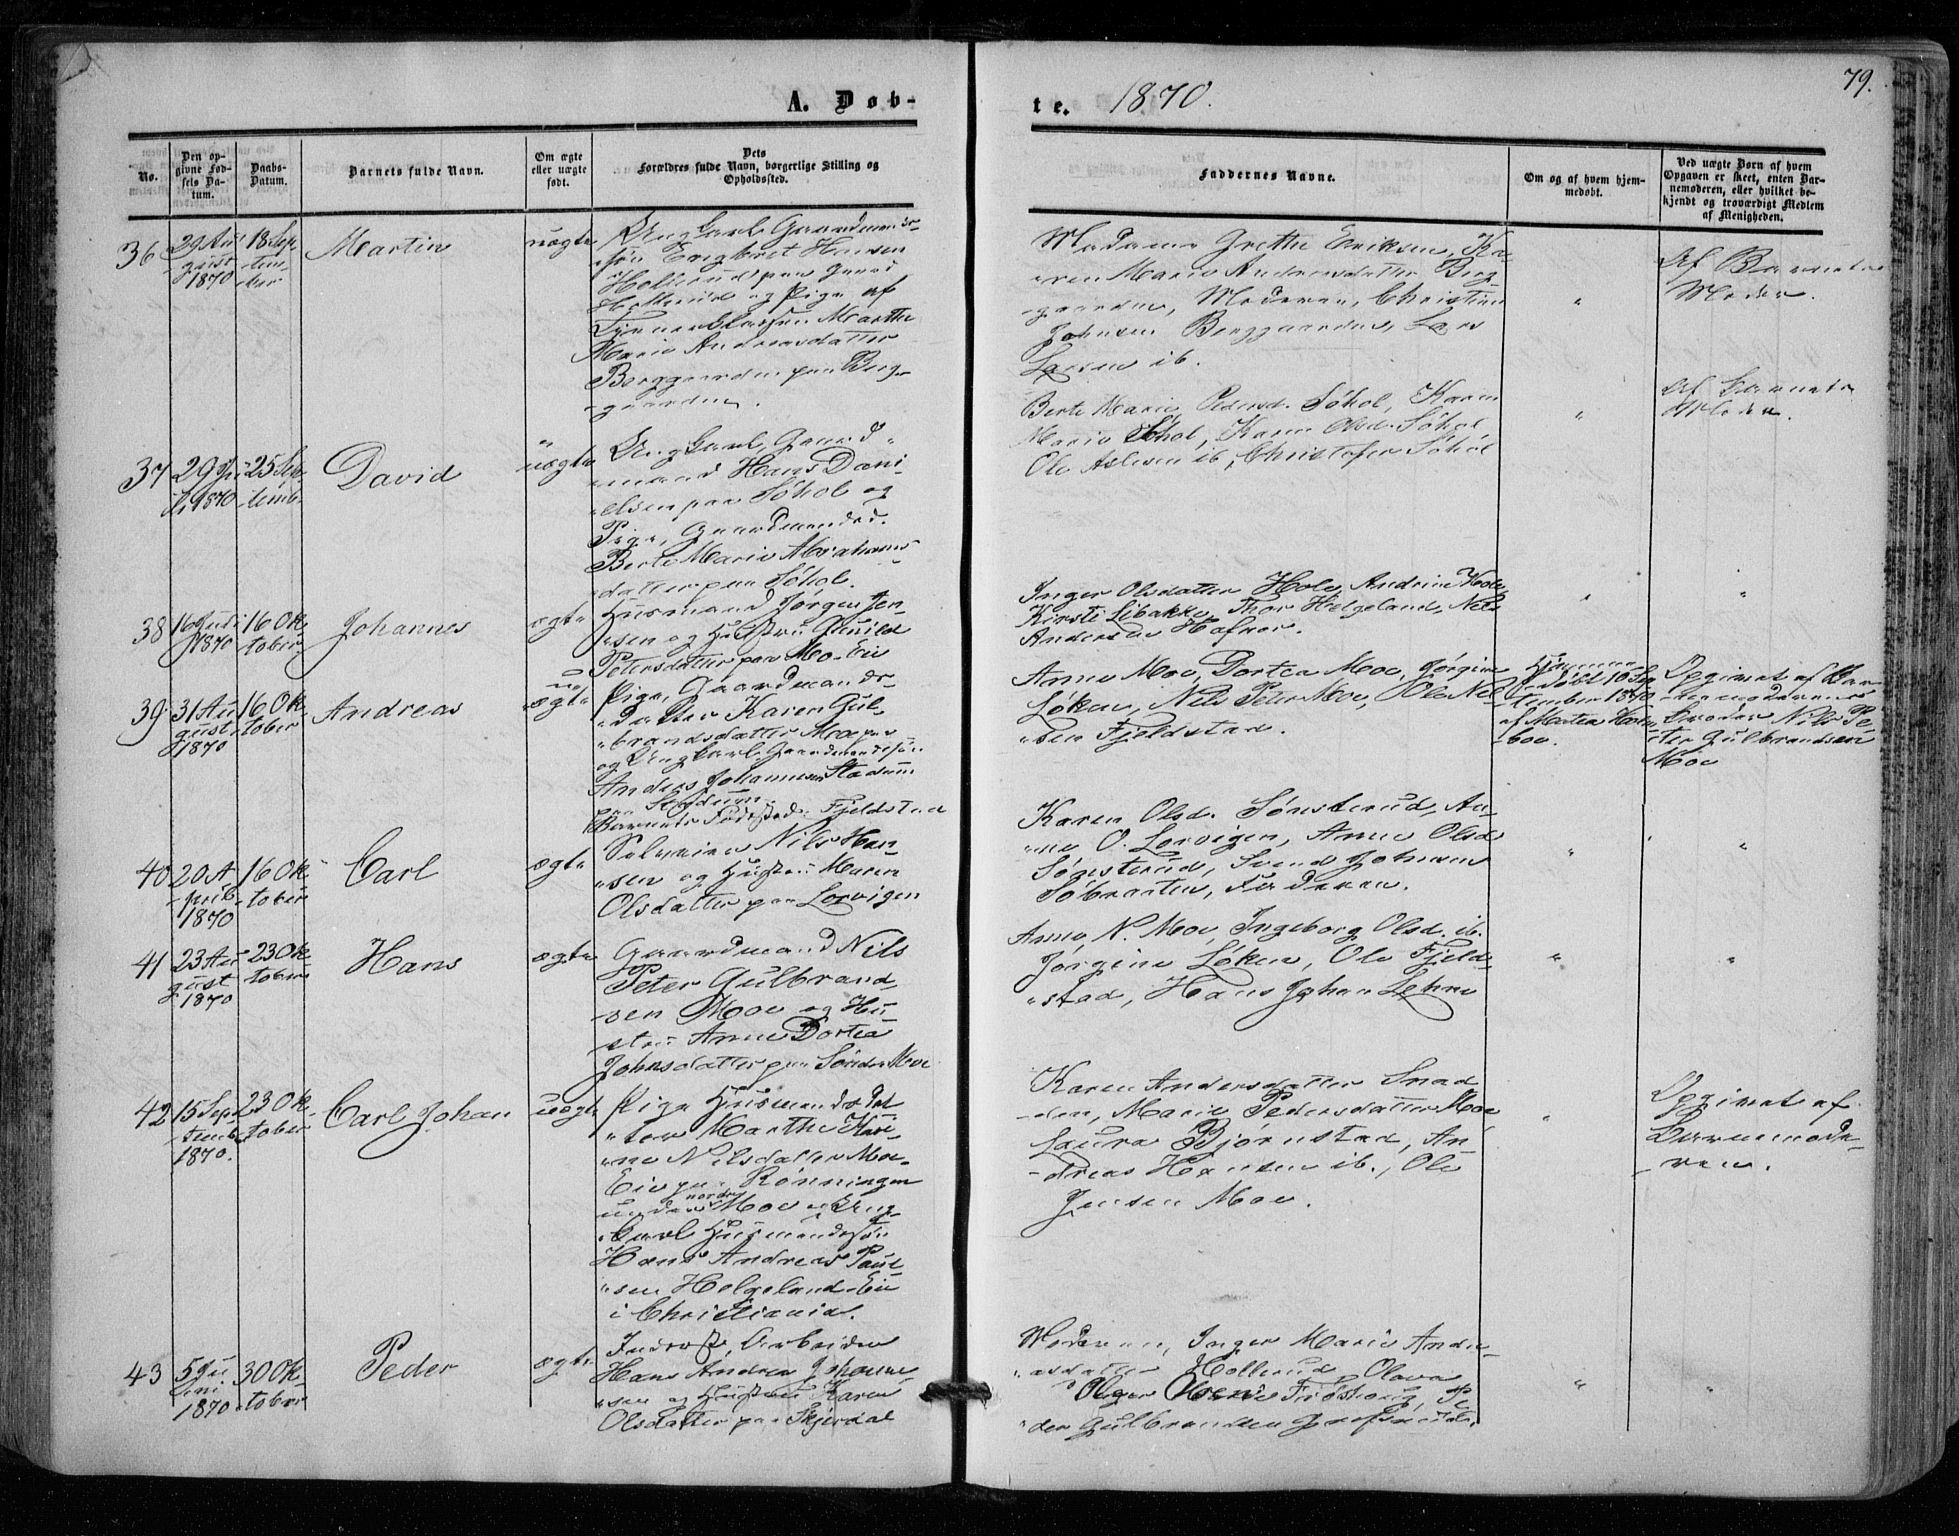 79.
A. Døb-
te. 1870.
No.
Den op-
givne Fød-
sels Da-
tum.
Daabs-
Datum.
Barnets fulde Navn.
Om ægte
eller uægte
født.
Dets
Forældres fulde Navn, borgerlige Stilling og
Opholdssted.
Faddernes Navne.
Om og af hvem hjem-
medøbt.
Ved uægte Børn af hvem
Opgaven er skeet, enten Bar-
nemoderen, eller hvilket be-
kjendt og troværdigt Medlem
af Menigheden.
36
29 Au-
gust
1870
18 Sep-
tem-
ber
Martin
uægte
Ungkarl, Gaardmands-
søn Engbret Hansen
Hollerud paa Gaard
Hollerud og Pige af
Marthe
Marie Andreasdatter
Berggaarden paa Berg-
gaarden.
Madame Grethe Eriksen, Ka-
ren Marie Andreasdatter Berg-
gaarden, Moderen, Christian
Johnsen Berggaarden, Lars
Larsen ib.
"
Af Barnets
Moder.
37
29
1870
25 Sep-
temb.
David
"
uægte
Ungkarl, Gaard-
mand Hans Dani-
elsen paa Søhol og
Pige, Gaardmandsd.
Berte Marie Abrahams-
datter paa Søhol.
Berte Marie Pedersd. Søhol, Karen
Marie Søhol, Karen Olsd. Søhol,
Ole Aslesen ib, Christofer Søhol
"
Af Barnets
Moder.
38
16 Juli
1870
16 Ok-
tober
Johannes
ægte
Husmand Jørgen Jen-
sen og Hustru Gunild
Petersdatter paa Mo-Eie
Inger Olsdatter Hole, Andrine Hole,
Kirsti Libakke, Thor Helgeland, Nils
Andersen Hafnor.
"
"
39
31 Au-
gust
1870
16 Ok-
tober
Andreas
u-
ægte
Pige, Gaardmands-
datter Karen Gul-
brandsdatter Moe paa
og Ungkarl, Gaardmandssøn
Anders Johannesen Stadum
paa Stadum.
Barnets Fødested: Fjeldstad
Anne Moe, Dortea Moe, Jørgine
Løken, Nils Peter Moe, Ole Nil-
sen Fjeldstad.
Hjemme-
døbt 10 Sep-
tember 1870
af Martea
boe.
Opgivet af Bar-
nemoderens
Broder Nils Pe-
ter Gulbrandsen
Moe
40
20 A-
pril
1870
16 Ok-
tober
Carl
ægte
Nils Han-
sen og Hustru Maren
Olsdatter paa Lorvigen
Karen Olsd. Sønsterud, An-
ne O. Lorvigen, Anne Olsd
Sønsterud, Svend Johnsen
Søbraaten, Faderen.
"
"
41
23 Au-
gust
1870
23 Ok-
tober
Hans
ægte
Gaardmand Nils
Peter Gulbrand-
sen Moe og Hu-
stru Anne Dortea
Johnsdatter paa Søndre Moe
Anne N. Moe, Ingeborg Olsd. ib.
Jørgine Løken, Ole Fjeld-
stad, Hans Johan Lehne
"
"
42
15 Sep-
temb.
1870.
23 Ok-
tober
Carl Johan
uægte
Pige Husmandsdat-
ter Marthe Kari-
ne Nilsdatter Moe-
Eie paa Rønningen
under nordre Moe og Ung-
karl Husmandssøn
Hans Andreas Paul-
sen Helgeland-Eie
i Christiania.
Karen Andersdatter Snad-
den, Marie Pedersdatter Moe
Laura Bjørnstad, An-
dreas Hansen ib., Ole
Jensen Moe.
"
Opgivet af
Barnemode-
ren.
43
5 Ju-
ni
1870
30 Ok-
tober
Peder
ægte
Inderst, Arbeider
Hans Andrea Johanne-
sen og Hustru Karen
Olsdatter paa Skjerdal
Moderen, Inger Marie Andre-
asdatter Hollerud, Olava
Olsen Frøshoug, Pe-
der Gulbrandsen
"
"